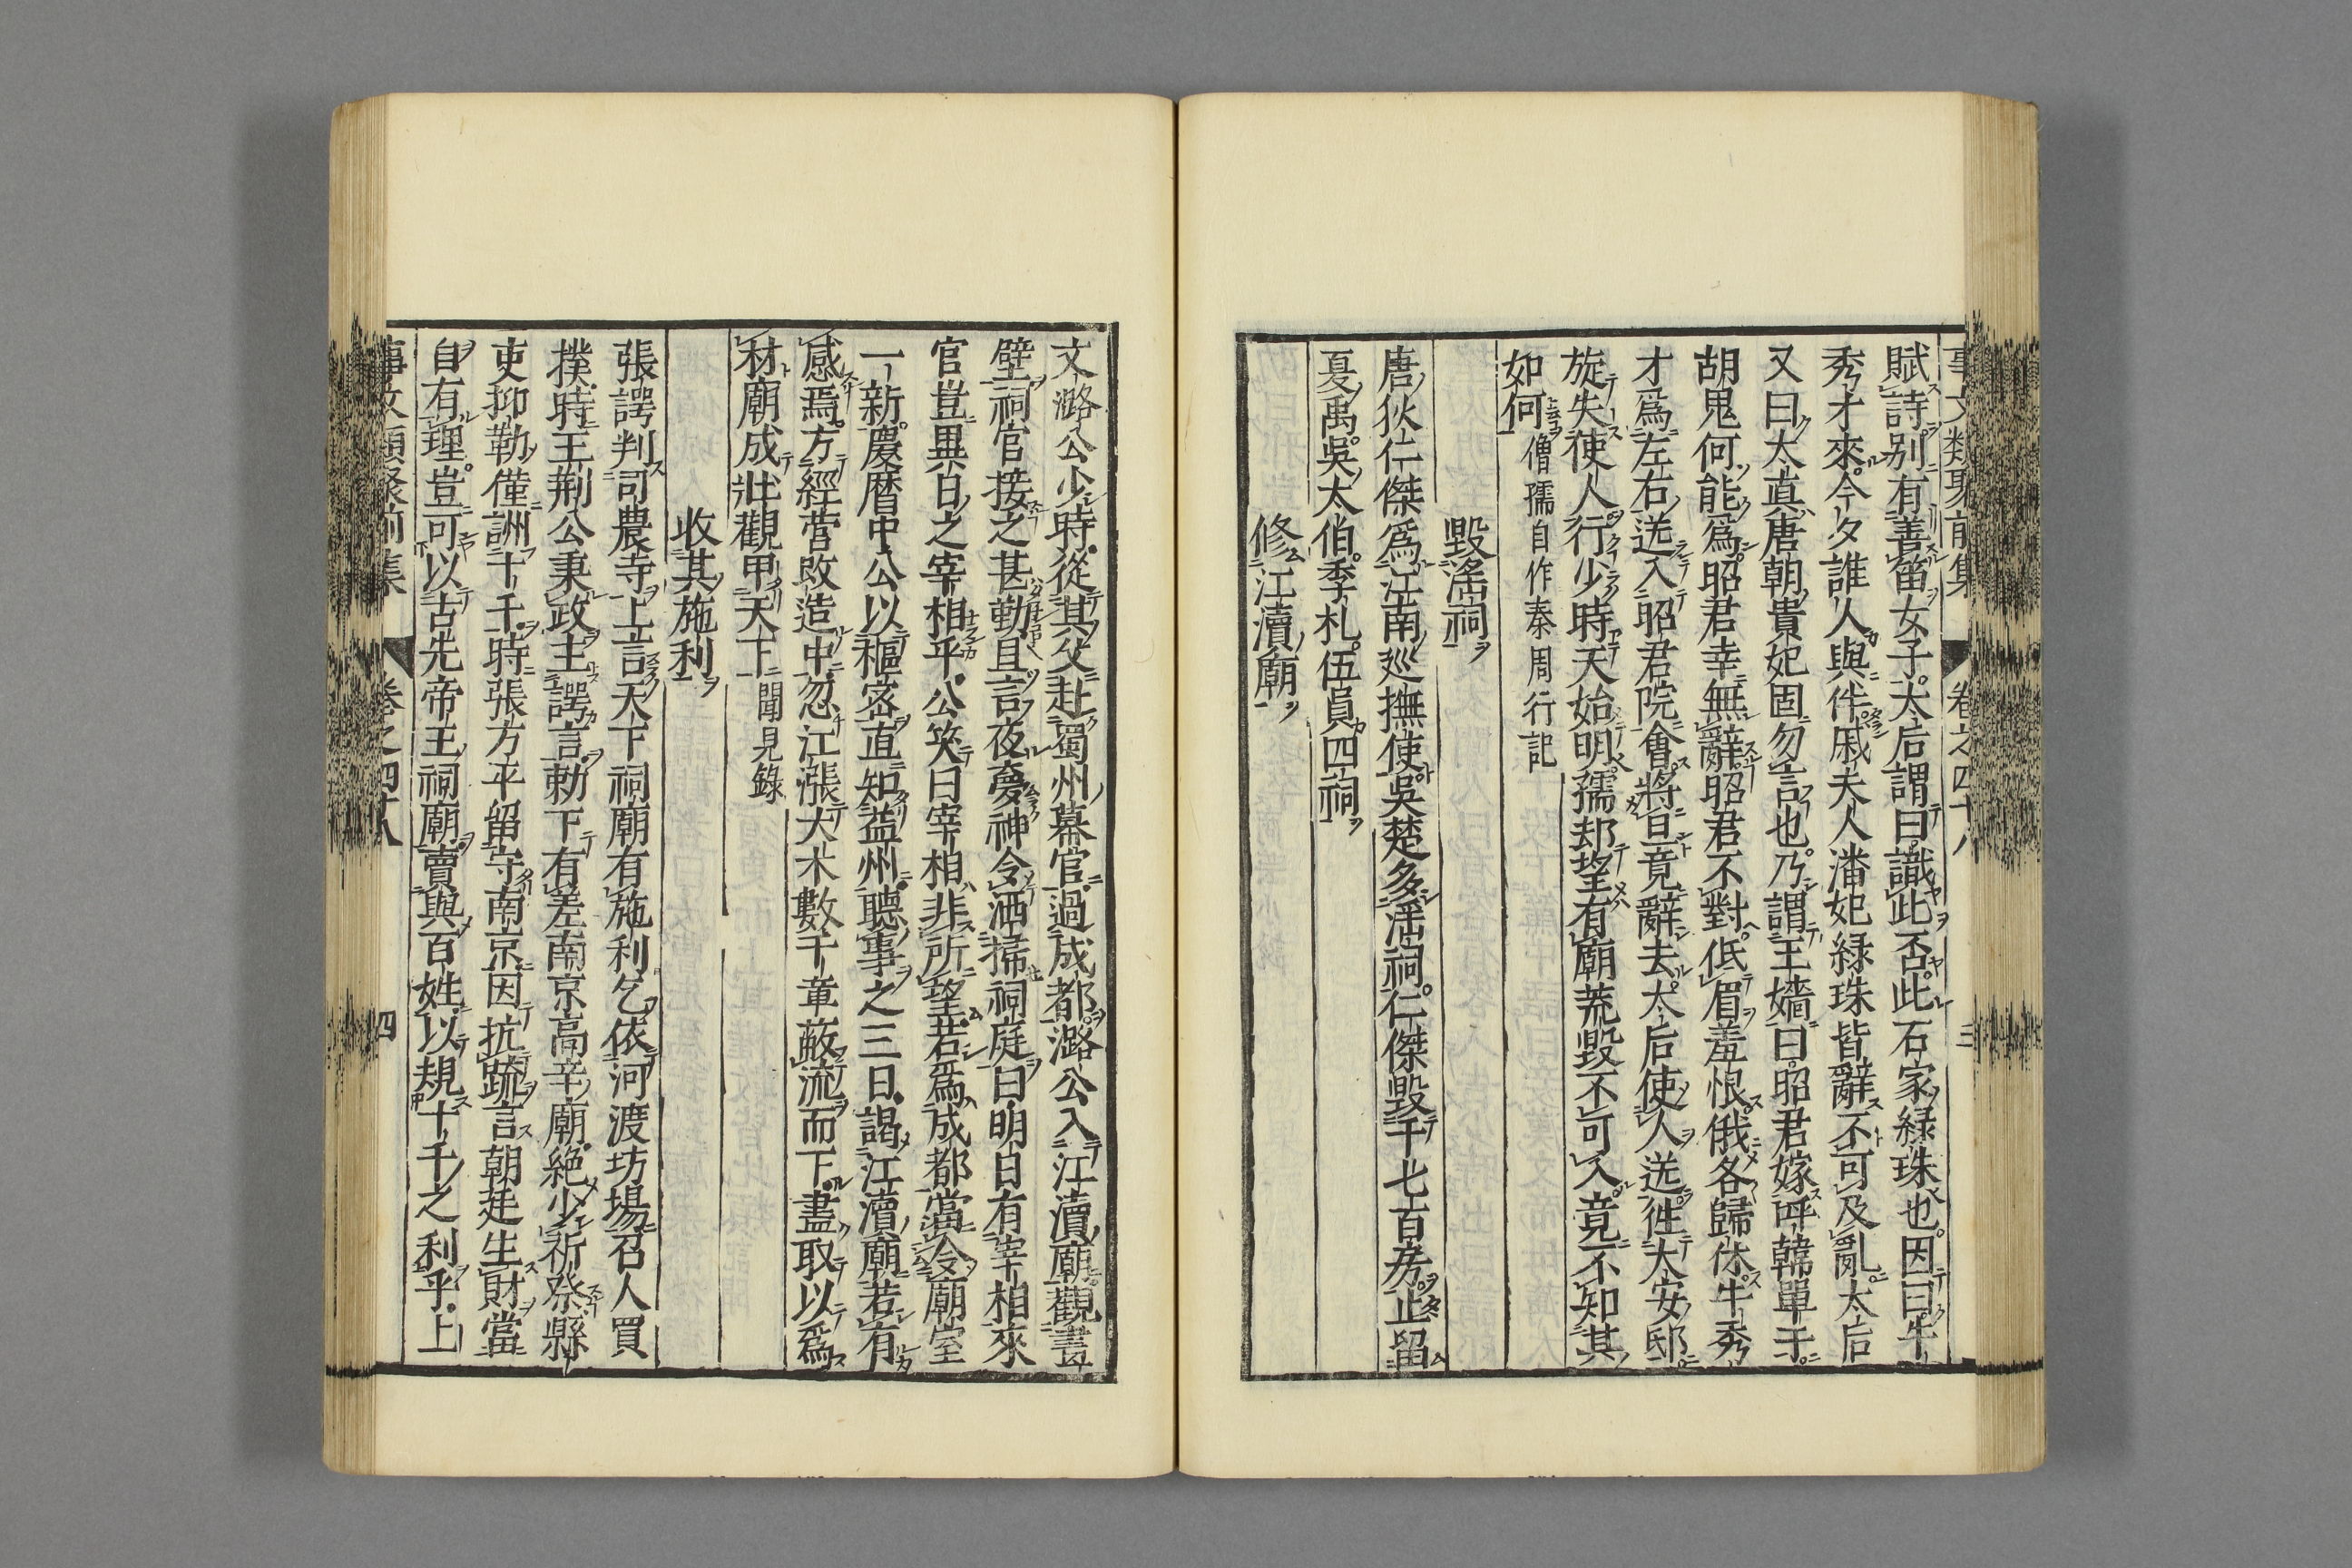 事文類聚前集 卷之四十八 三
賦詩別有善笛女子太后謂曰識此否此石家緑珠也因曰牛
秀才來今夕誰人與伴戚夫人潘妃緑珠皆辭不可及亂太后
又曰太真唐朝貴妃固勿言也乃謂王嬙曰昭君嫁呼韓單于
胡鬼何能爲昭君幸無辭昭君不對低眉羞恨俄各歸休牛秀
才爲左右送入昭君院會將旦竟辭去太后使人送往大安邸
旋失使人行少時天始明孺却望有廟荒毀不可入竟不知其
如何僧孺自作秦周行記
毀滛祠
唐狄仁傑爲江南巡撫使吳楚多滛祠仁傑毀千七百房止留
夏禹吳太伯季札伍員四祠
修江瀆廟
文潞公少時從其父赴蜀州幕官過成都潞公入江瀆廟觀畫
壁祠官接之甚勤且言夜夢神令洒掃祠庭曰明日有宰相來
官豈異日之宰相乎公笑曰宰相非所望若爲成都當令廟室
一新慶曆中公以樞密直知益州聽事之三日謁江瀆廟若有
感焉方經营改造中忽江漲大木數千章蔽流而下盡取以爲
材廟成壯觀甲天下聞見錄
收其施利
張諤判司農寺上言天下祠廟有施利乞依河渡坊場召人買
撲時王荆公秉政主諤言勅下有差南京高辛廟絶少祈祭縣
吏抑勒僅詶十千時張方平留守南京因抗䟽言朝廷生財當
自有理豈可以古先帝王祠廟賣與百姓以規十千之利乎上
事文類聚前集 卷之四十八 四